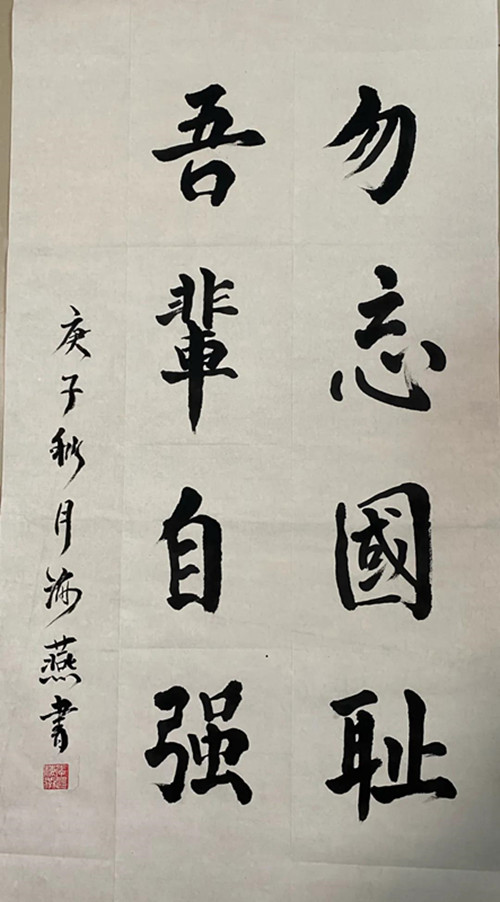 勿忘國耻
吾輩自强
庚子秋月海燕書